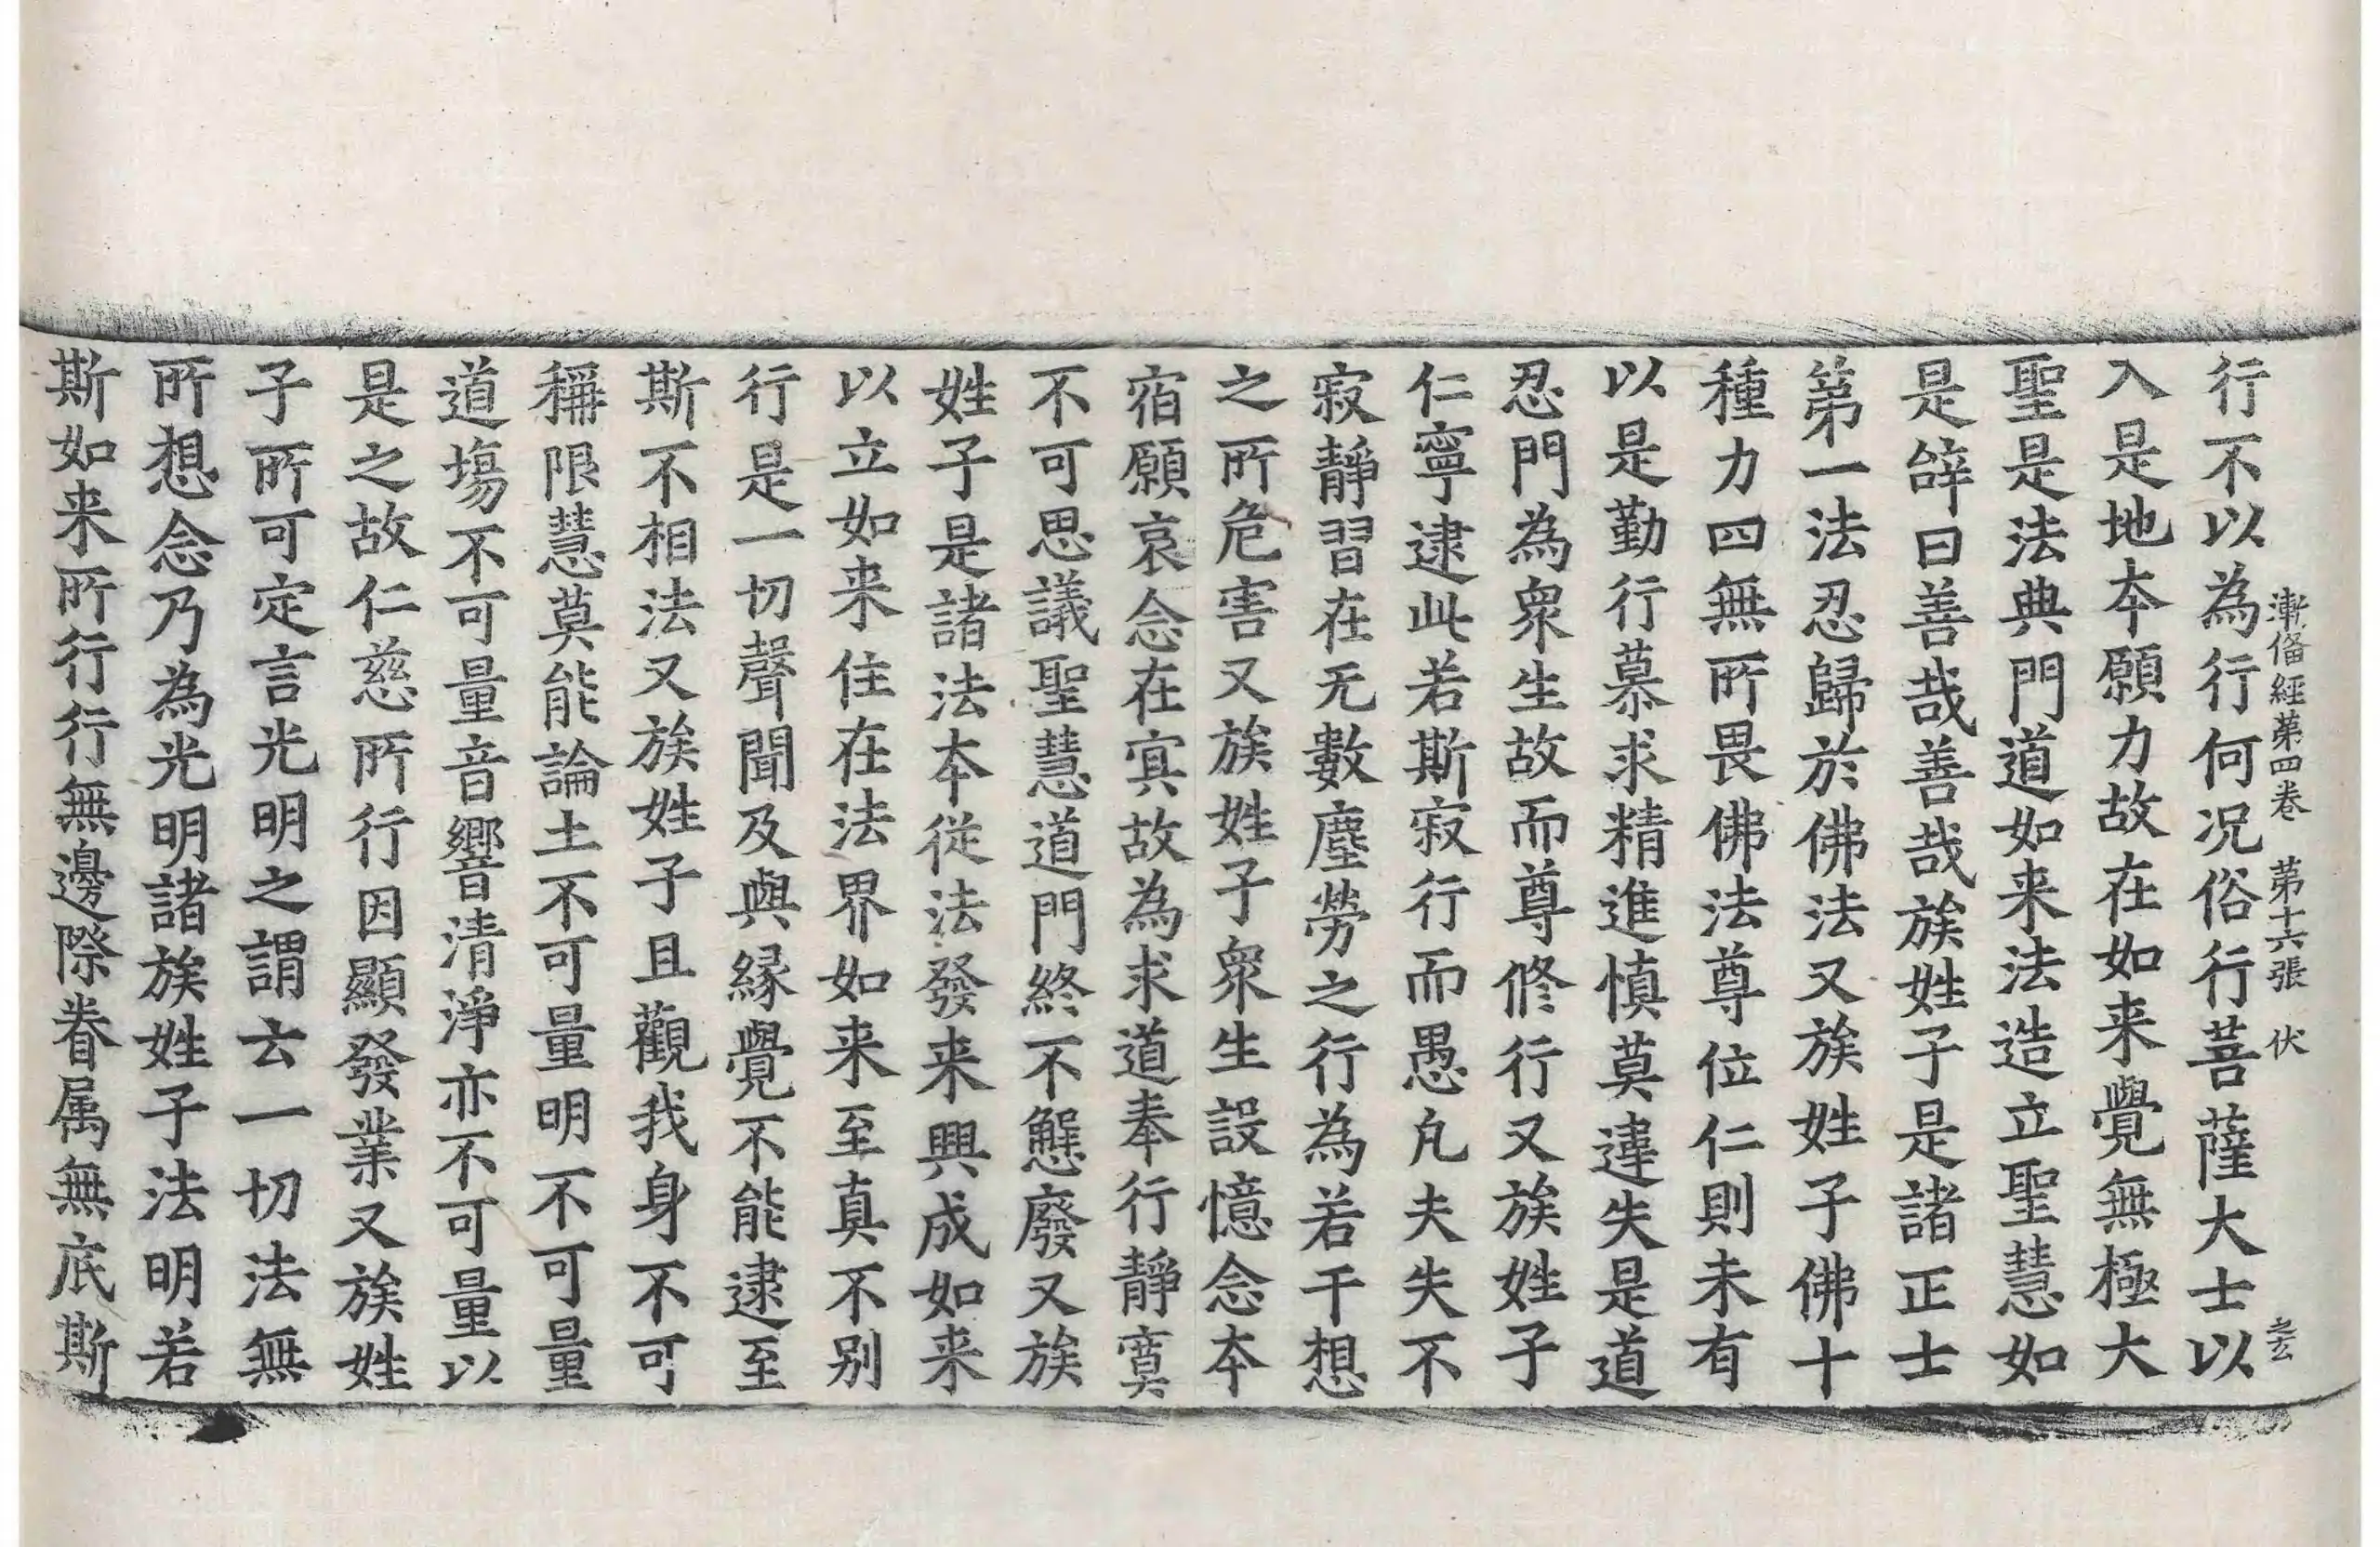 漸俻經第四卷 第十六張 伏
行不以為行何况俗行菩薩大士以
入是地本願力故在如来覺無極大
聖是法典門道如来法造立聖慧如
是辝曰善哉善哉族姓子是諸正士
第一法忍歸於佛法又族姓子佛十
種力四無所畏佛法尊位仁則未有
以是勤行慕求精進慎莫違失是道
忍門為衆生故而尊修行又族姓子
仁寧逮此若斯寂行而愚凡夫失不
寂靜習在无數塵勞之行為若干想
之所危害又族姓子衆生設憶念本
宿願哀念在冥故為求道奉行靜寞
不可思議聖慧道門終不懈廢又族
姓子是諸法本従法發来興成如来
以立如来住在法界如来至真不别
行是一切聲聞及與緣覺不能逮至
斯不相法又族姓子且觀我身不可
稱限慧莫能論土不可量明不可量
道塲不可量音響清淨亦不可量以
是之故仁慈所行因顯發業又族姓
子所可定言光明之謂云一切法無
所想念乃為光明諸族姓子法明若
斯如来所行行無邊際眷属無底斯